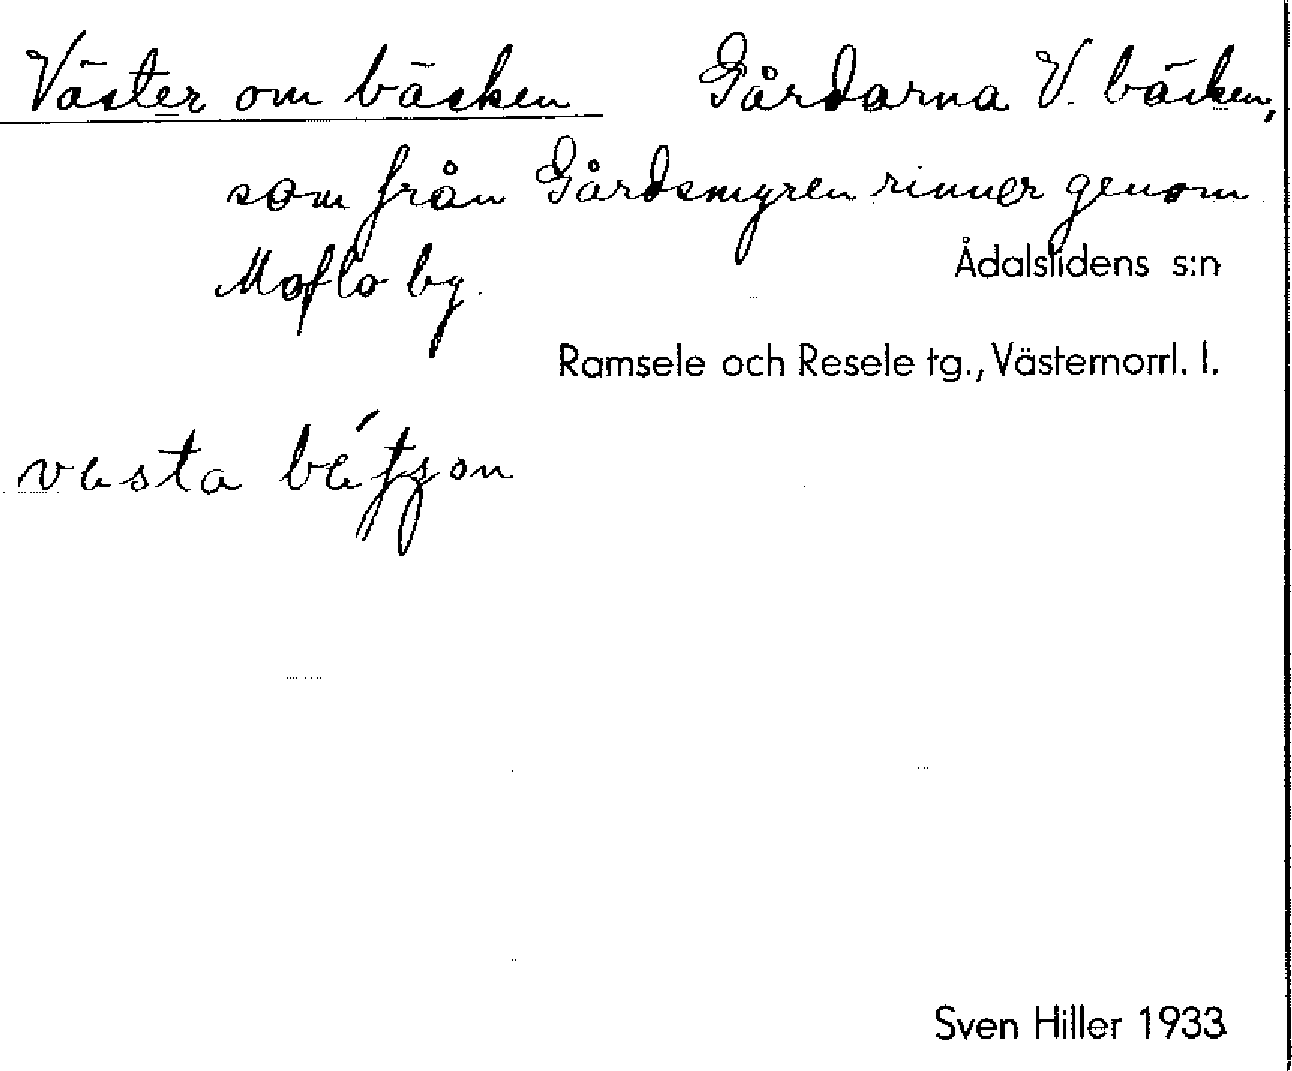 Väster om bäcken Gårdarna V. bäcken,
som från Gårdsmyren rinner genom
Moflo by.
Ådalslidens s:n
Ramsele och Resele tg., Västernorrl. l.
vasta
Sven Hiller 1933